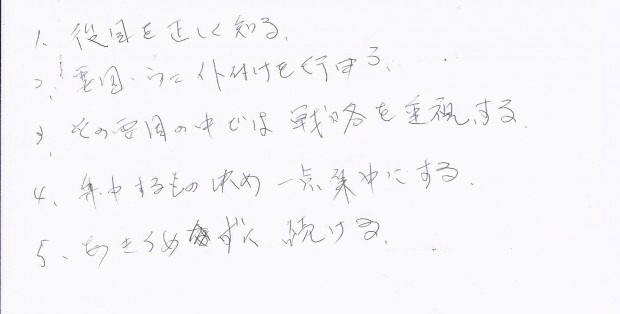 1、役目を正しく知る、
2、要因・うに仕付けを行する、
3、その要因の中では戦略を重視する、
4、集中するもの決め一点集中にする、
5、あきらめずに続ける、